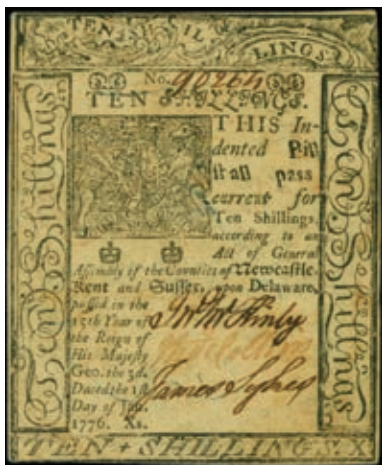 TEN SHILLINGS
No. 90264
TEN SHILLINGS.
THIS In-
dented Bill
shall pass
current for
Ten Shillings,
according to an
Act of General
Assembly of the Counties of Newcastle
Kent and Sussex, upon Delaware,
passed in the
15th Year of
the Reign of
His Majesty
Geo. the 3d.
Dated the 1st
Day of Jan.
1776. Xs.
James Sykes
Ten Shillings
Ten Shillings
TEN SHILLINGS X